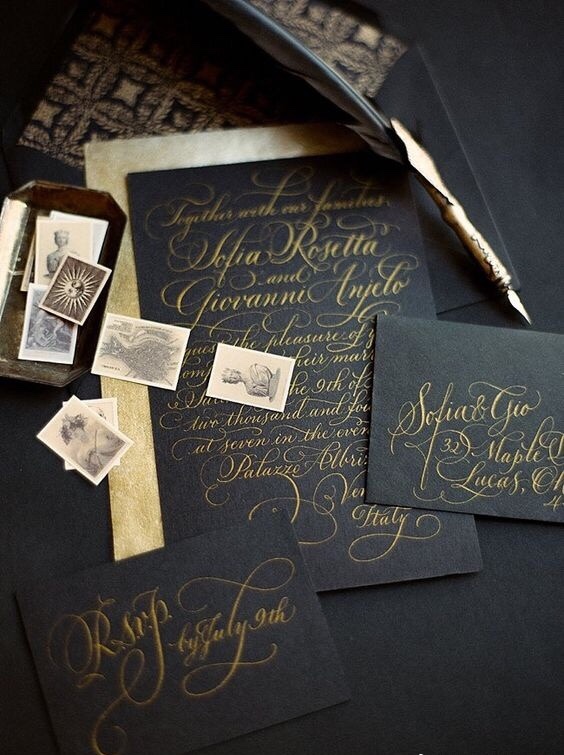 Together with our families,
Sofia Rosetta
and
Giovanni Anjelo
the pleasure of
their mar
the 9th of
two thousand and fou
at seven in the even
Palazzo Albri
Ven
Italy
Sofia & Gio
32 Maple
Lucas, Oh
4
R.s.v.p.
by July 9th